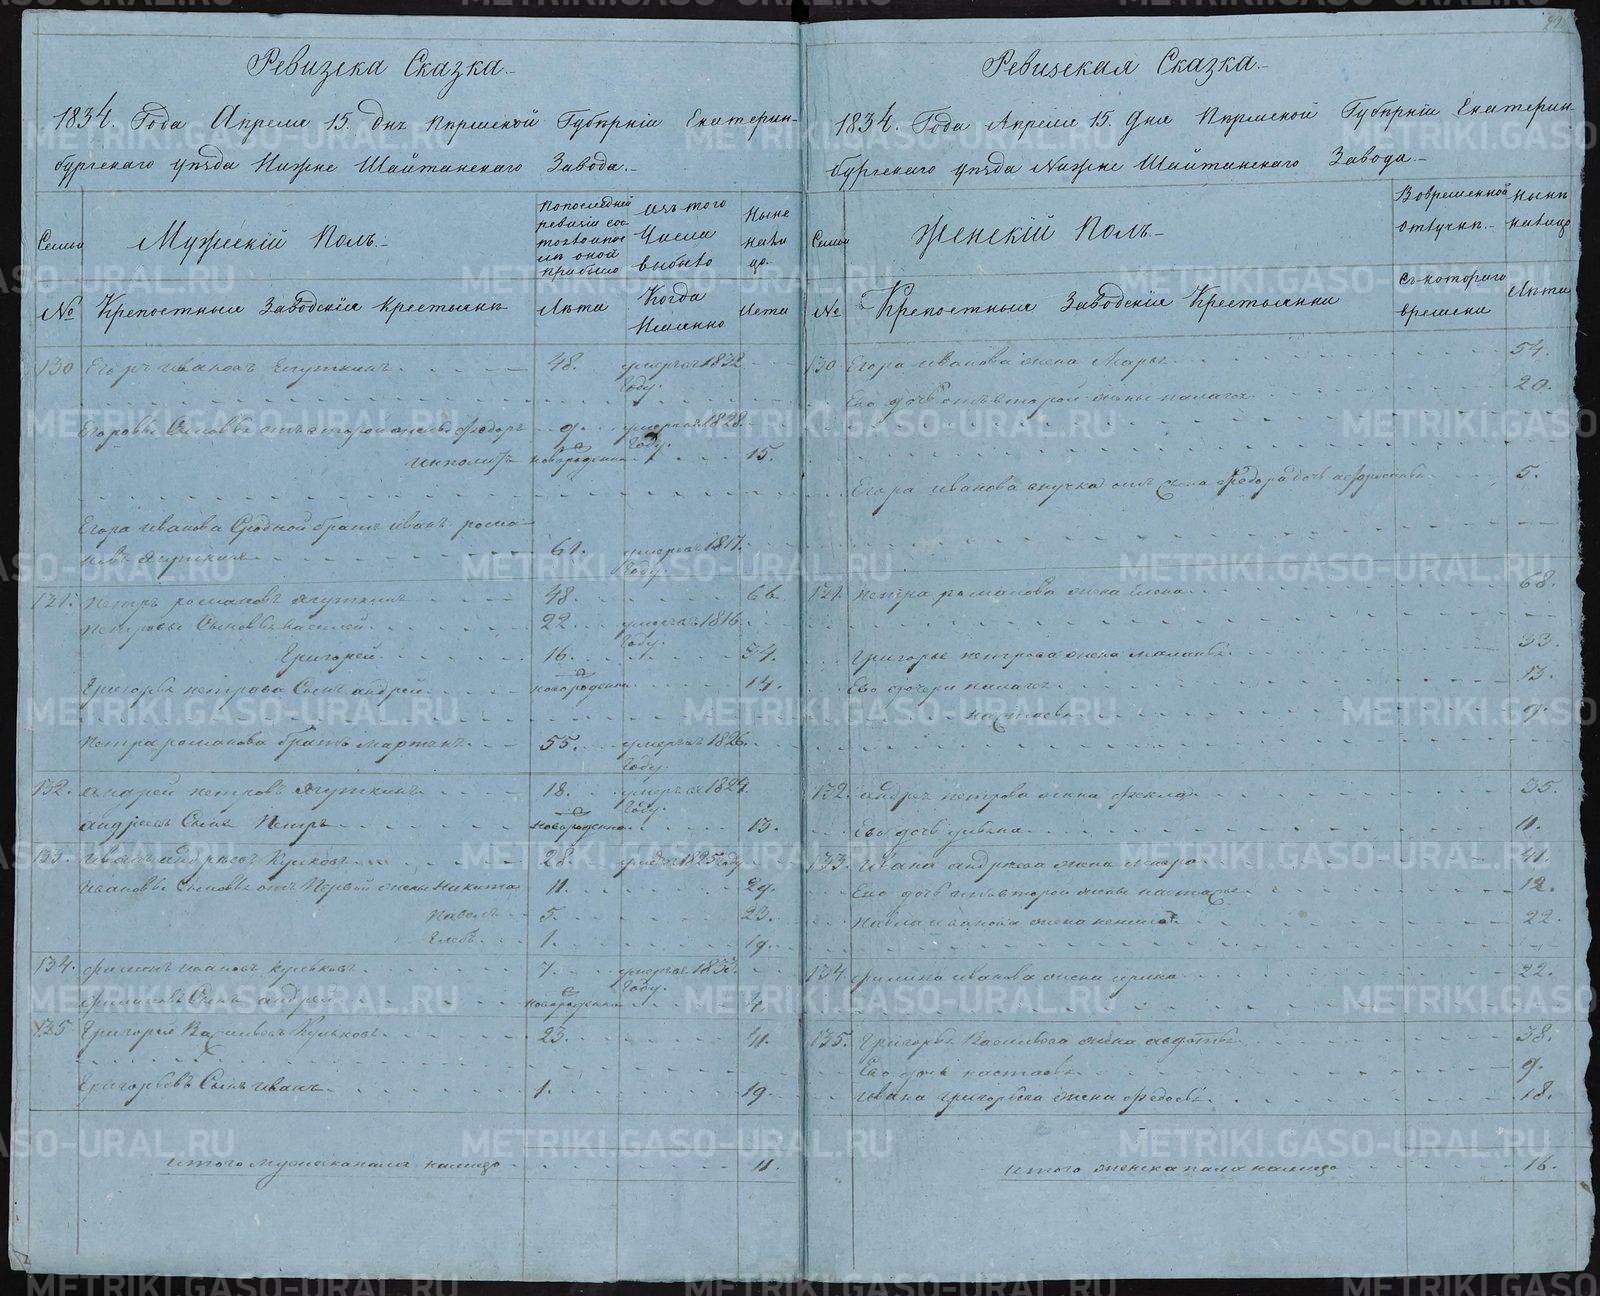 Ревизска Сказка.
1834. Года Апреля 15. днъ Пермской Губерніи Екатерин-
бургскаго уѣзда Нижне Шайтанскаго Завода.
Семьи
Мужескій Полъ.
По последней ревизіи состояло и после оной прибыло
Изъ того Числа выбыло
Ныне на лицо.
№
Крепостныя Заводскія Крестьянъ
Лѣта
Когда Имянно
Лета
130 Егоръ Ивановъ Ягуткинъ 48. умеръ въ 1832 Году.
Егоровы Сыновья отъ второй жены Федоръ 9. умеръ въ 1828 Году.
Ипполитъ новорожденъ 15.
Егора Иванова Сродной братъ Иванъ рома-
новъ Ягуткинъ 61. умеръ въ 1817 Году.
131. Петръ романовъ Ягуткинъ 48. 66.
Петровы Сыновья василей 22. умеръ въ 1816 Году.
Григорей 16. 34.
Григорья петрова Сынъ андрей новорожденъ 14.
Петра романова братъ мартинъ 55. умеръ въ 1826 Году.
132. Андрей петровъ Ягуткинъ 18. умеръ въ 1824 Году.
андреевъ Сынъ Петръ новорожденъ 13.
133. Иванъ андреевъ Кульковъ 28. умеръ 1825 году
Ивановы Сыновья отъ Первой жены Никита 11. 29.
Павелъ 5. 23.
Глебъ 1. 19.
134. Филипъ ивановъ кульковъ 7. умеръ въ 1833 Году.
филиповъ Сынъ андрей новорожденъ 4.
135 Григорей Васильевъ Кульковъ 23. 41.
Григорьевъ Сынъ иванъ 1. 19.
Итого мужеска пола налицо 11.
Ревизская Сказка.
1834. Года Апреля 15. Дня Пермской Губерніи Екатерин-
бургскаго уѣзда Нижне Шайтанскаго Завода.
Семьи
Женскій Полъ.
Во временной отлучки.
Ныне на лицо
№
Крепостныя Заводскія Крестьянки
Съ котораго времени
Лѣта
130 Егора иванова жена Марья 54.
Ево дочь отъ второй жены палагея 20.
Егора иванова внучка отъ Сына Федора дочь 5.
131. Петра романова жена Елена 68.
Григорья петрова жена маланья 33.
Ево дочери палагея 13.
настасья 9.
132. андрея петрова жена фекла 35.
Ево дочь ульяна 11.
133. Ивана андреева жена мавра 41.
Ево дочь отъ второй жены настасья 12.
Павла иванова жена 22.
134 филипа иванова жена ирина 22.
135. Григорья Васильева жена авдотья 38.
Ево дочь настасья 9.
Ивана григорьева жена федосья 18.
Итого женска пола налицо 16.
METRIKI.GASO-URAL.RU